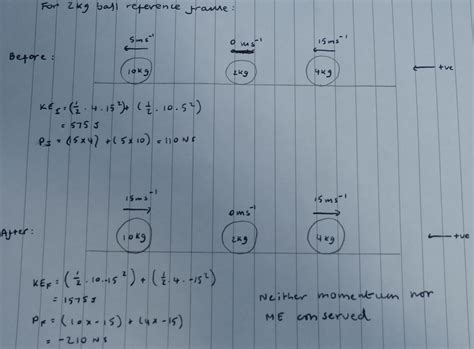 For 2kg ball reference frame:
5ms⁻¹ 0 ms⁻¹ 15ms⁻¹
Before: 10kg 2kg 4kg +ve
KE_I = (½ . 4 . 15²) + (½ . 10 . 5²)
= 575 J
P_I = (15 x 4) + (5 x 10) = 110 NS
15ms⁻¹ 0ms⁻¹ 15ms⁻¹
After: 10kg 2kg 4kg +ve
KE_F = (½ . 10 . -15²) + (½ . 4 . -15²)
= 1575 J
P_F = (10 x -15) + (4 x -15)
= -210 NS
Neither momentum nor
ME conserved